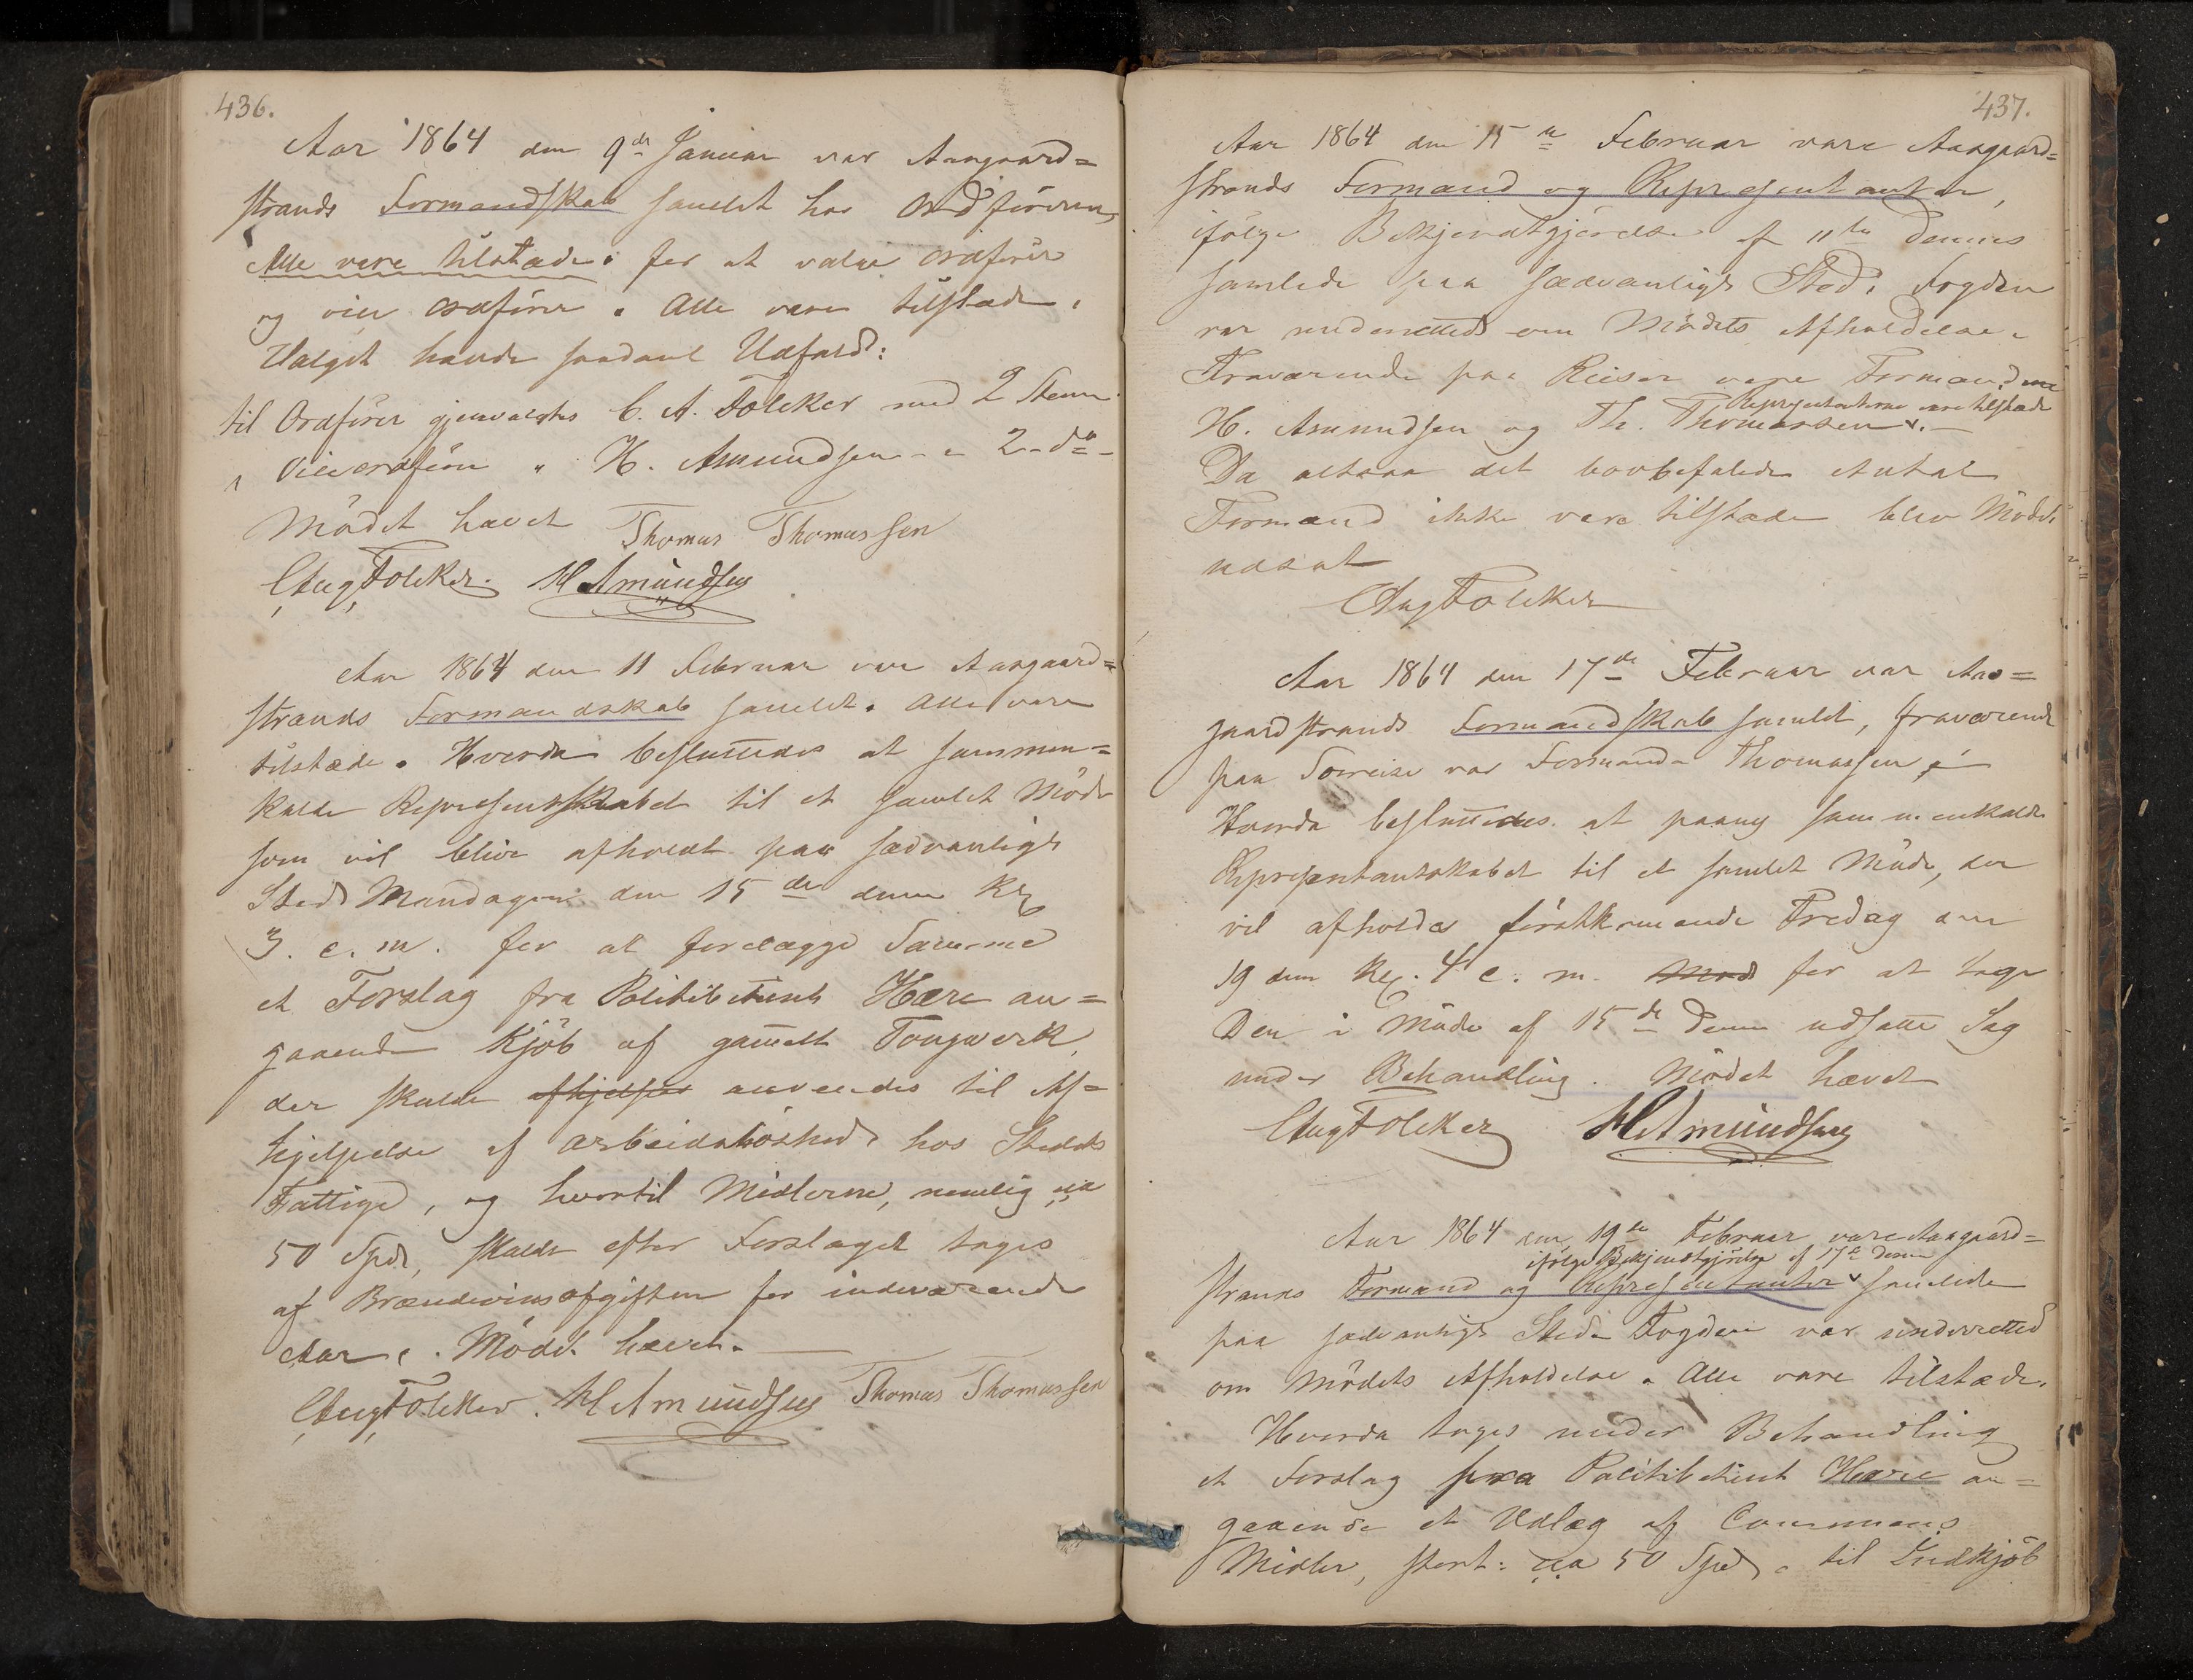 436.
Aar 1864 den 9de Januar var Aasgaard=
strands Formandskab samlet hos Ordføreren,
Alle vare tilstæde. for at vælge Ordfører
og vice Ordfører. Alle vare tilstæde.
Valget havde saadant Udfald:
til Ordfører gjenvalgtes C. A. Fölcker med 2 Stem.
" Viceordfører " H. Amundsen - " 2 - do -
Mödet hævet Thomas Thomassen
CAugFölcker. HAmundsen
Aar 1864 den 11 Februar var Aasgaard=
strands Formandskab samlet. Alle vare
tilstæde. Hvorda besluttedes at sammen=
kalde Represent.skabet til et samlet Möde
som vil blive afholdt paa sædvanligt
Sted Mandagen den 15de denne Kl.
3. e. m. for at forelægge Samme
et Forslag fra Politibetjent Hære an=
gaaende Kjöb af gammelt Tougverk,
der skulde afhjelpes anvendes til Af=
hjelpelse af Arbeidslöshed hos Stedets
Fattige, og hvortil Midlerne, nemlig ca
50 Spd, skulde efter Forslaget tages
af Brændevinsafgiften for indeværende
Aar. Mödet hævet.
CAugFölcker. HAmundsen Thomas Thomassen
437.
Aar 1864 den 15de Februar vare Aasgaard=
strands Formænd og Representanter,
ifölge Bekjendtgjörelse af 11te dennes
samlede paa sædvanligt Sted. Fogden
var underrettet om Mödets Afholdelse.
Fraværende paa Reiser vare Formændene
Representanterne vare tilstæde
H. Amundsen og Th. Thomassen v. -
Da altsaa det lovbefalede Antal
Formænd ikke vare tilstæde blev Mödet
udsat
CAugFölcker
Aar 1864 den 17de Februar var Aas=
gaardstrands Formandskab samlet, fraværende
paa Soereise var Formand Thomassen
Hvorda besluttedes at paany sammenkalde
Representantskabet til et samlet Möde, der
vil afholdes förstkommende Fredag den
19 dennes Kl. 4 e. m. Möd for at tage
Den i Möde af 15de Denne udsatte Sag
under Behandling. Mödet hævet
CAugFölcker HAmundsen
Aar 1864 den 19de Februar vare Aasgaard=
ifölge Bekjendtgjörelse af 17de denne
strands Formænd og Representanter v samlede
paa sædvanligt Sted. Fogden var underrettet
om Mödets Afholdelse. Alle vare tilstæde.
Hvorda toges under Behandling
et Forslag fra Politibetjent Hære an=
gaaende et Udlæg af Communens
Midler, stort: ca 50 Spd, til Indkjöb